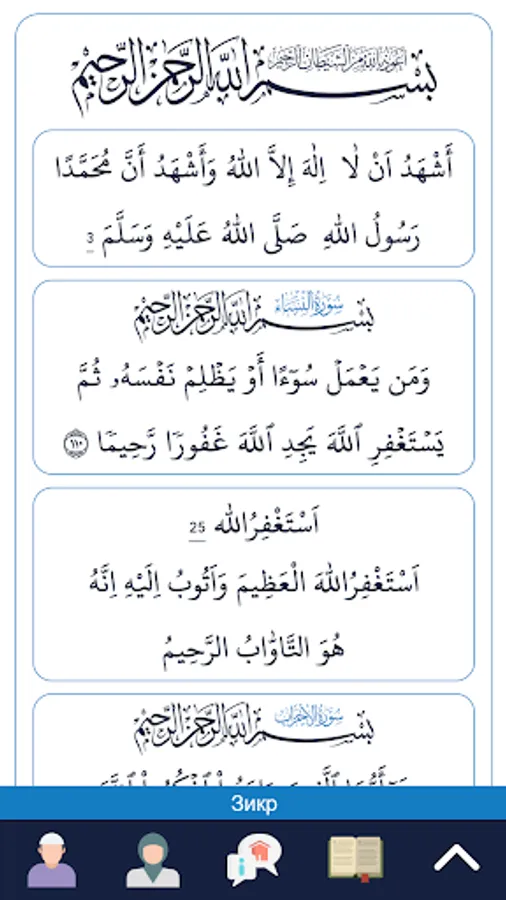 أعوذ بالله من الشيطان الرجيم
بسم الله الرحمن الرحيم
أَشْهَدُ اَنْ لَا اِلٰهَ إِلاَّ اللهُ وَأَشْهَدُ أَنَّ مُحَمَّدًا
رَسُولُ اللهِ صَلَّى اللهُ عَلَيْهِ وَسَلَّمَ 3
سورة النساء
بسم الله الرحمن الرحيم
وَمَن يَعْمَلْ سُوٓءًا أَوْ يَظْلِمْ نَفْسَهُۥ ثُمَّ
يَسْتَغْفِرِ ٱللَّهَ يَجِدِ ٱللَّهَ غَفُورًا رَّحِيمًا ١١٠
اَسْتَغْفِرُالله 25
اَسْتَغْفِرُاللهَ الْعَظِيمَ وَاَتُوبُ اِلَيْهِ اِنَّهُ
هُوَ التَّاوَّابُ الرَّحِيمُ
سورة الأحزاب
بسم الله الرحمن الرحيم
Зикр